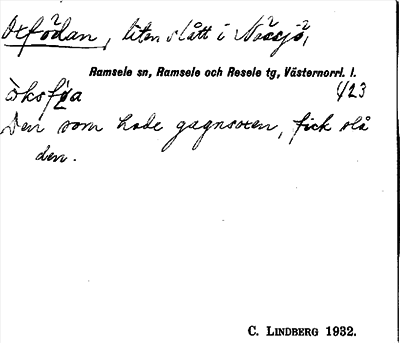 Oxfödan, liten slått i Nässjö,
Ramsele sn, Ramsele och Resele tg, Västernorrl. l.
òksføa 4/23
Den som hade gagnsoxen, fick slå
den.
C. LINDBERG 1932.